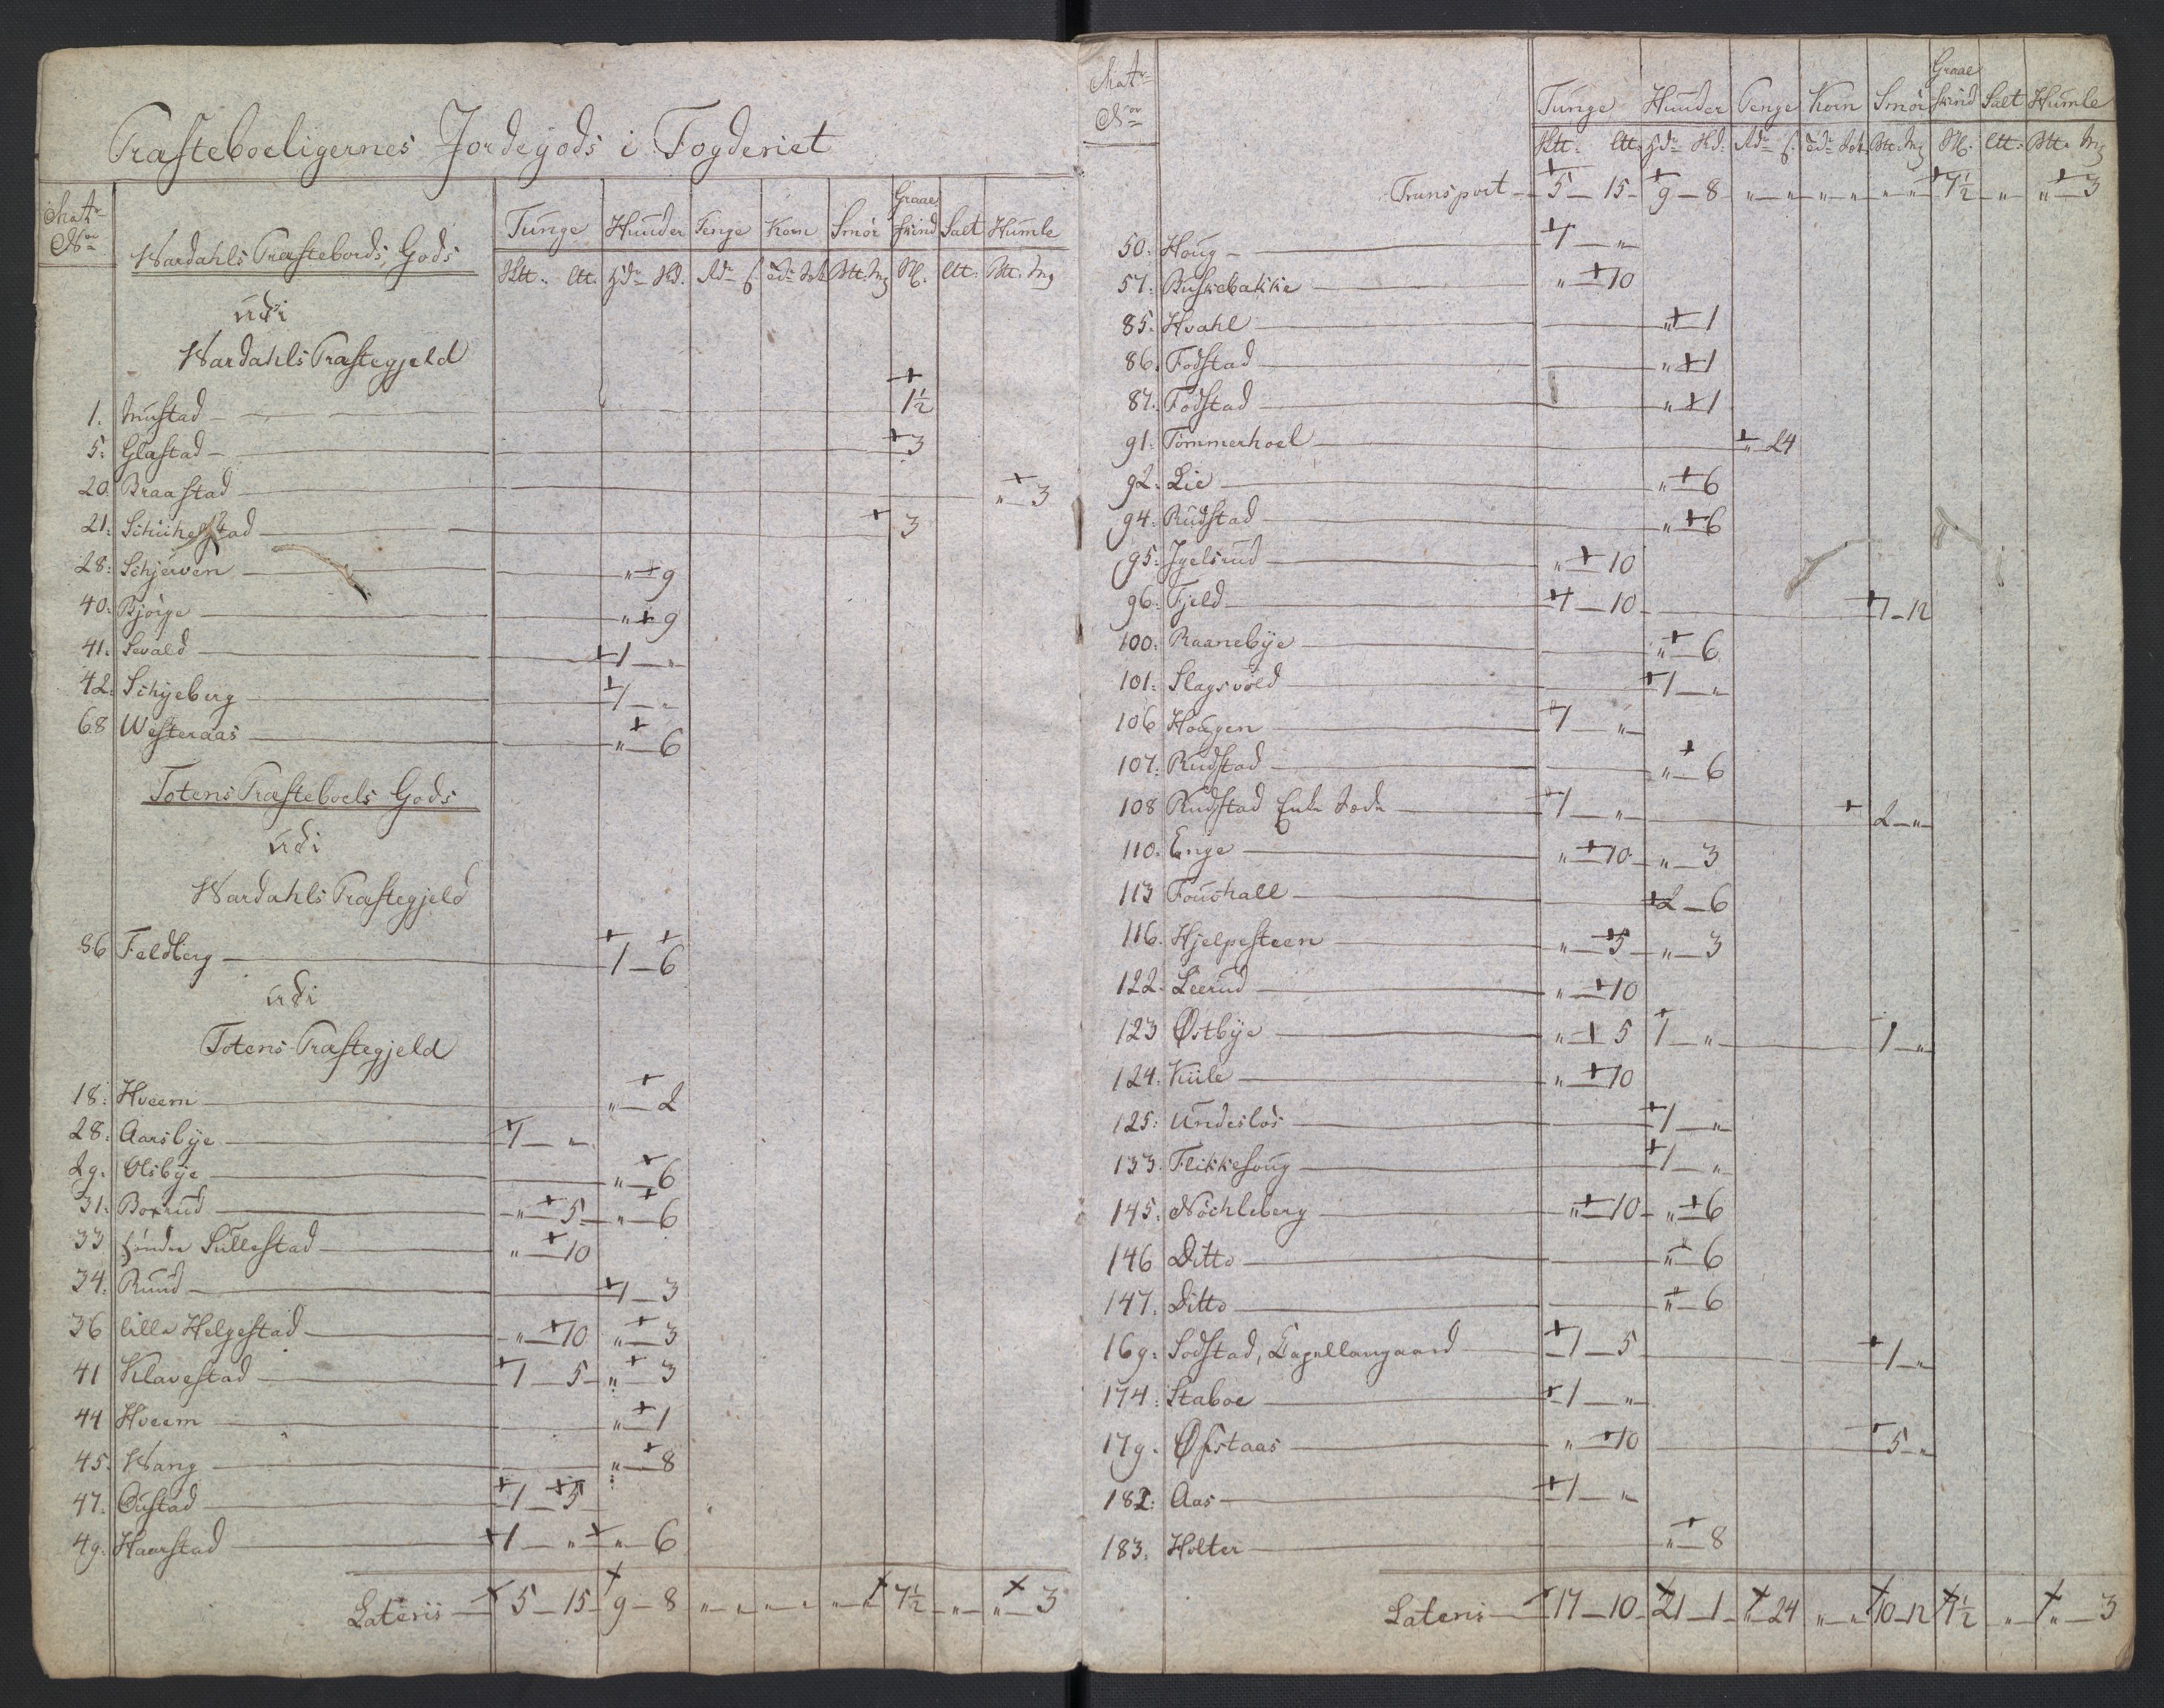 Præsteboeligernes Jordegods i Fogderiet
Matr No
Wardahls Præstebords Gods
Tunge Huuder Penge Korn Smør Graae skind Salt Humle
udi
Wardahls Præstegjeld
1. Mustad — 1½
5. Glæstad — 3
20. Braastad — " — 3
21. Schichelstad — 3
28. Schjerven — " — 9
40. Bjørge — " — 9
41. Sevald — 1 — "
42. Schyeberg — 1 — "
68 Westeraas — " — 6
Totens Præsteboels Gods
udi
Wardahls Præstegjeld
86 Feldberg — 1 — 6
udi
Totens Præstegjeld
18. Hveem — " — 2
28. Aarsbye — 1 — "
29. Olsbye — " — 6
31. Boxrud — " — 5 — " — 6
33 Søndre Sullestad — " — 10
34. Ruud — 1 — 3
36 lille Helgestad — " — 10 " — 3
41 Klavestad — 1 — 5 — " — 3
44 Hveem — " — 1
45. Wang — " — 8
47. Oustad — 1 — 5
49. Haarstad — 1 — " — " — 6
Lateris — 5 — 15 — 9 — 8 — " — " — " — " — " — " 7½ — " — " — 3
Matr No
Tunge Huuder Penge Korn Smør Graae skind Salt Humle
Transport — 5 — 15 — 9 — 8 " — " — " — " — " — " 7½ — " — " — 3
50. Houg — 1 — "
57. Buskebakke — " — 10
85. Hvahl — " — 1
86. Fodstad — " — 1
87. Fodstad — " — 1
91. Tømmerhoel — " — 24
92. Lie — " — 6
94. Rudstad — " — 6
95. Igelsrud — " — 10
96. Fjeld — 1 — 10 — 1 — 12
100. Raanebye — " — 6
101. Slagsvold — 1 — "
106 Hougen — 1 — "
107. Rudstad — " — 6
108 Rudstad Enke Sæde — 1 — " — 2 — "
110. Enge — " — 10 — " — 3
113 Fouchall — 2 — 6
116. Hjelpesteen — " — 5 — " — 3
122. Leerud — " — 10
123 Østbye — " — 5 1 — " — 1 — "
124. Kiile — " — 10
125. Undeslos — 1 — "
133. Flikkesoug — 1 — "
145. Nøchleberg — " — 10 — " — 6
146 Ditto — " — 6
147. Ditto — " — 6
169. Sodstad, Capellangaard — 1 — 5 — 1 — "
174. Staboe — 1 — "
179. Øfstaas — " — 10 — 5 — "
182. Aas — 1 — "
183. Holter — " — 8
Lateris — 17 — 10 — 21 — 1 — " 24 " — " 10 — 12 7½ — " — " — 3